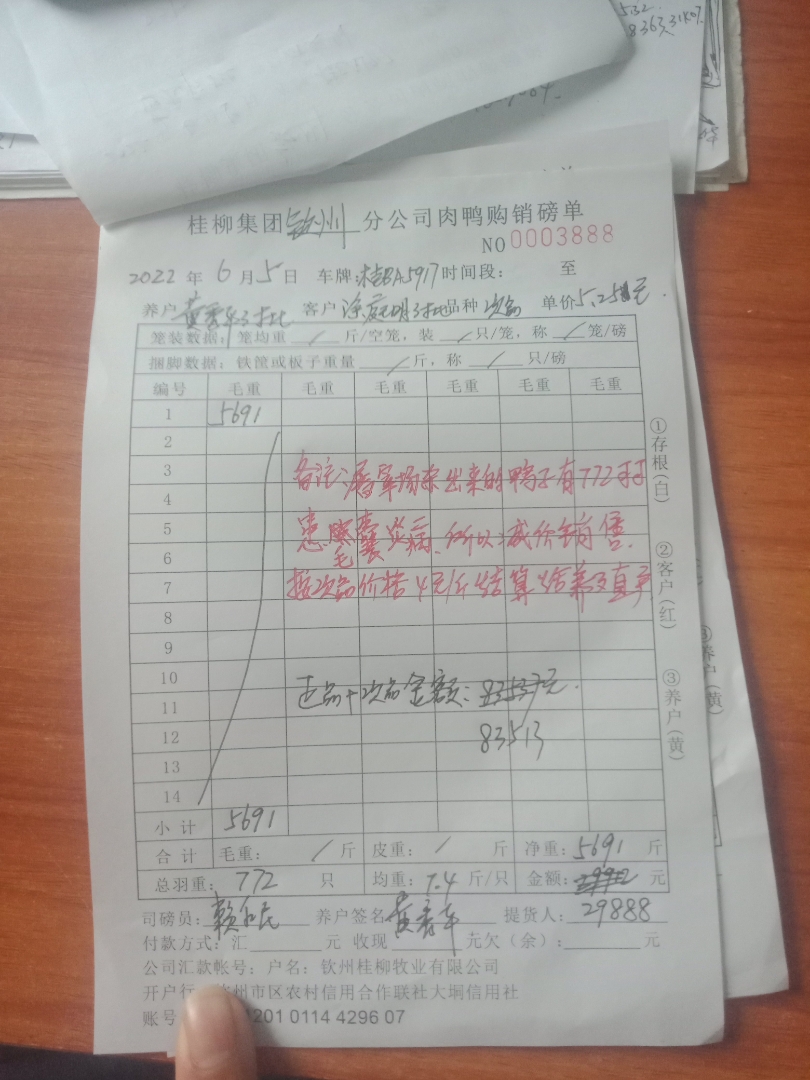 532.
桂柳集团钦州分公司肉鸭购销磅单
NO 0003888
2022 年 6 月 5 日 车牌:桂BA5917 时间段: 至
养户 客户 品种 次品 单价 5.25 元.
笼装数据: 笼均重 / 斤/空笼, 装 / 只/笼, 称 / 笼/磅
捆脚数据: 铁筐或板子重量 / 斤, 称 / 只/磅
编号 毛重 毛重 毛重 毛重 毛重 毛重
1 5691
2
3
备注: 屠宰场杀出来的鸭子有772只
4
5
患 毛囊炎病, 所以减价销售.
6
7
按次品价格4元/斤结算给
8
9
10
正品+次品金额:
11
12
83513
13
14
小计 5691
合计 毛重: / 斤 皮重: / 斤 净重: 5691 斤
总羽重: 772 只 均重: 7.4 斤/只 金额: 元
司磅员: 养户签名 提货人: 29888
付款方式: 汇 元 收现 元欠(余): 元
公司汇款帐号: 户名: 钦州桂柳牧业有限公司
开户行 州市区农村信用合作联社大垌信用社
账号 1201 0114 4296 07
①存根(白) ②客户(红) ③养户(黄)